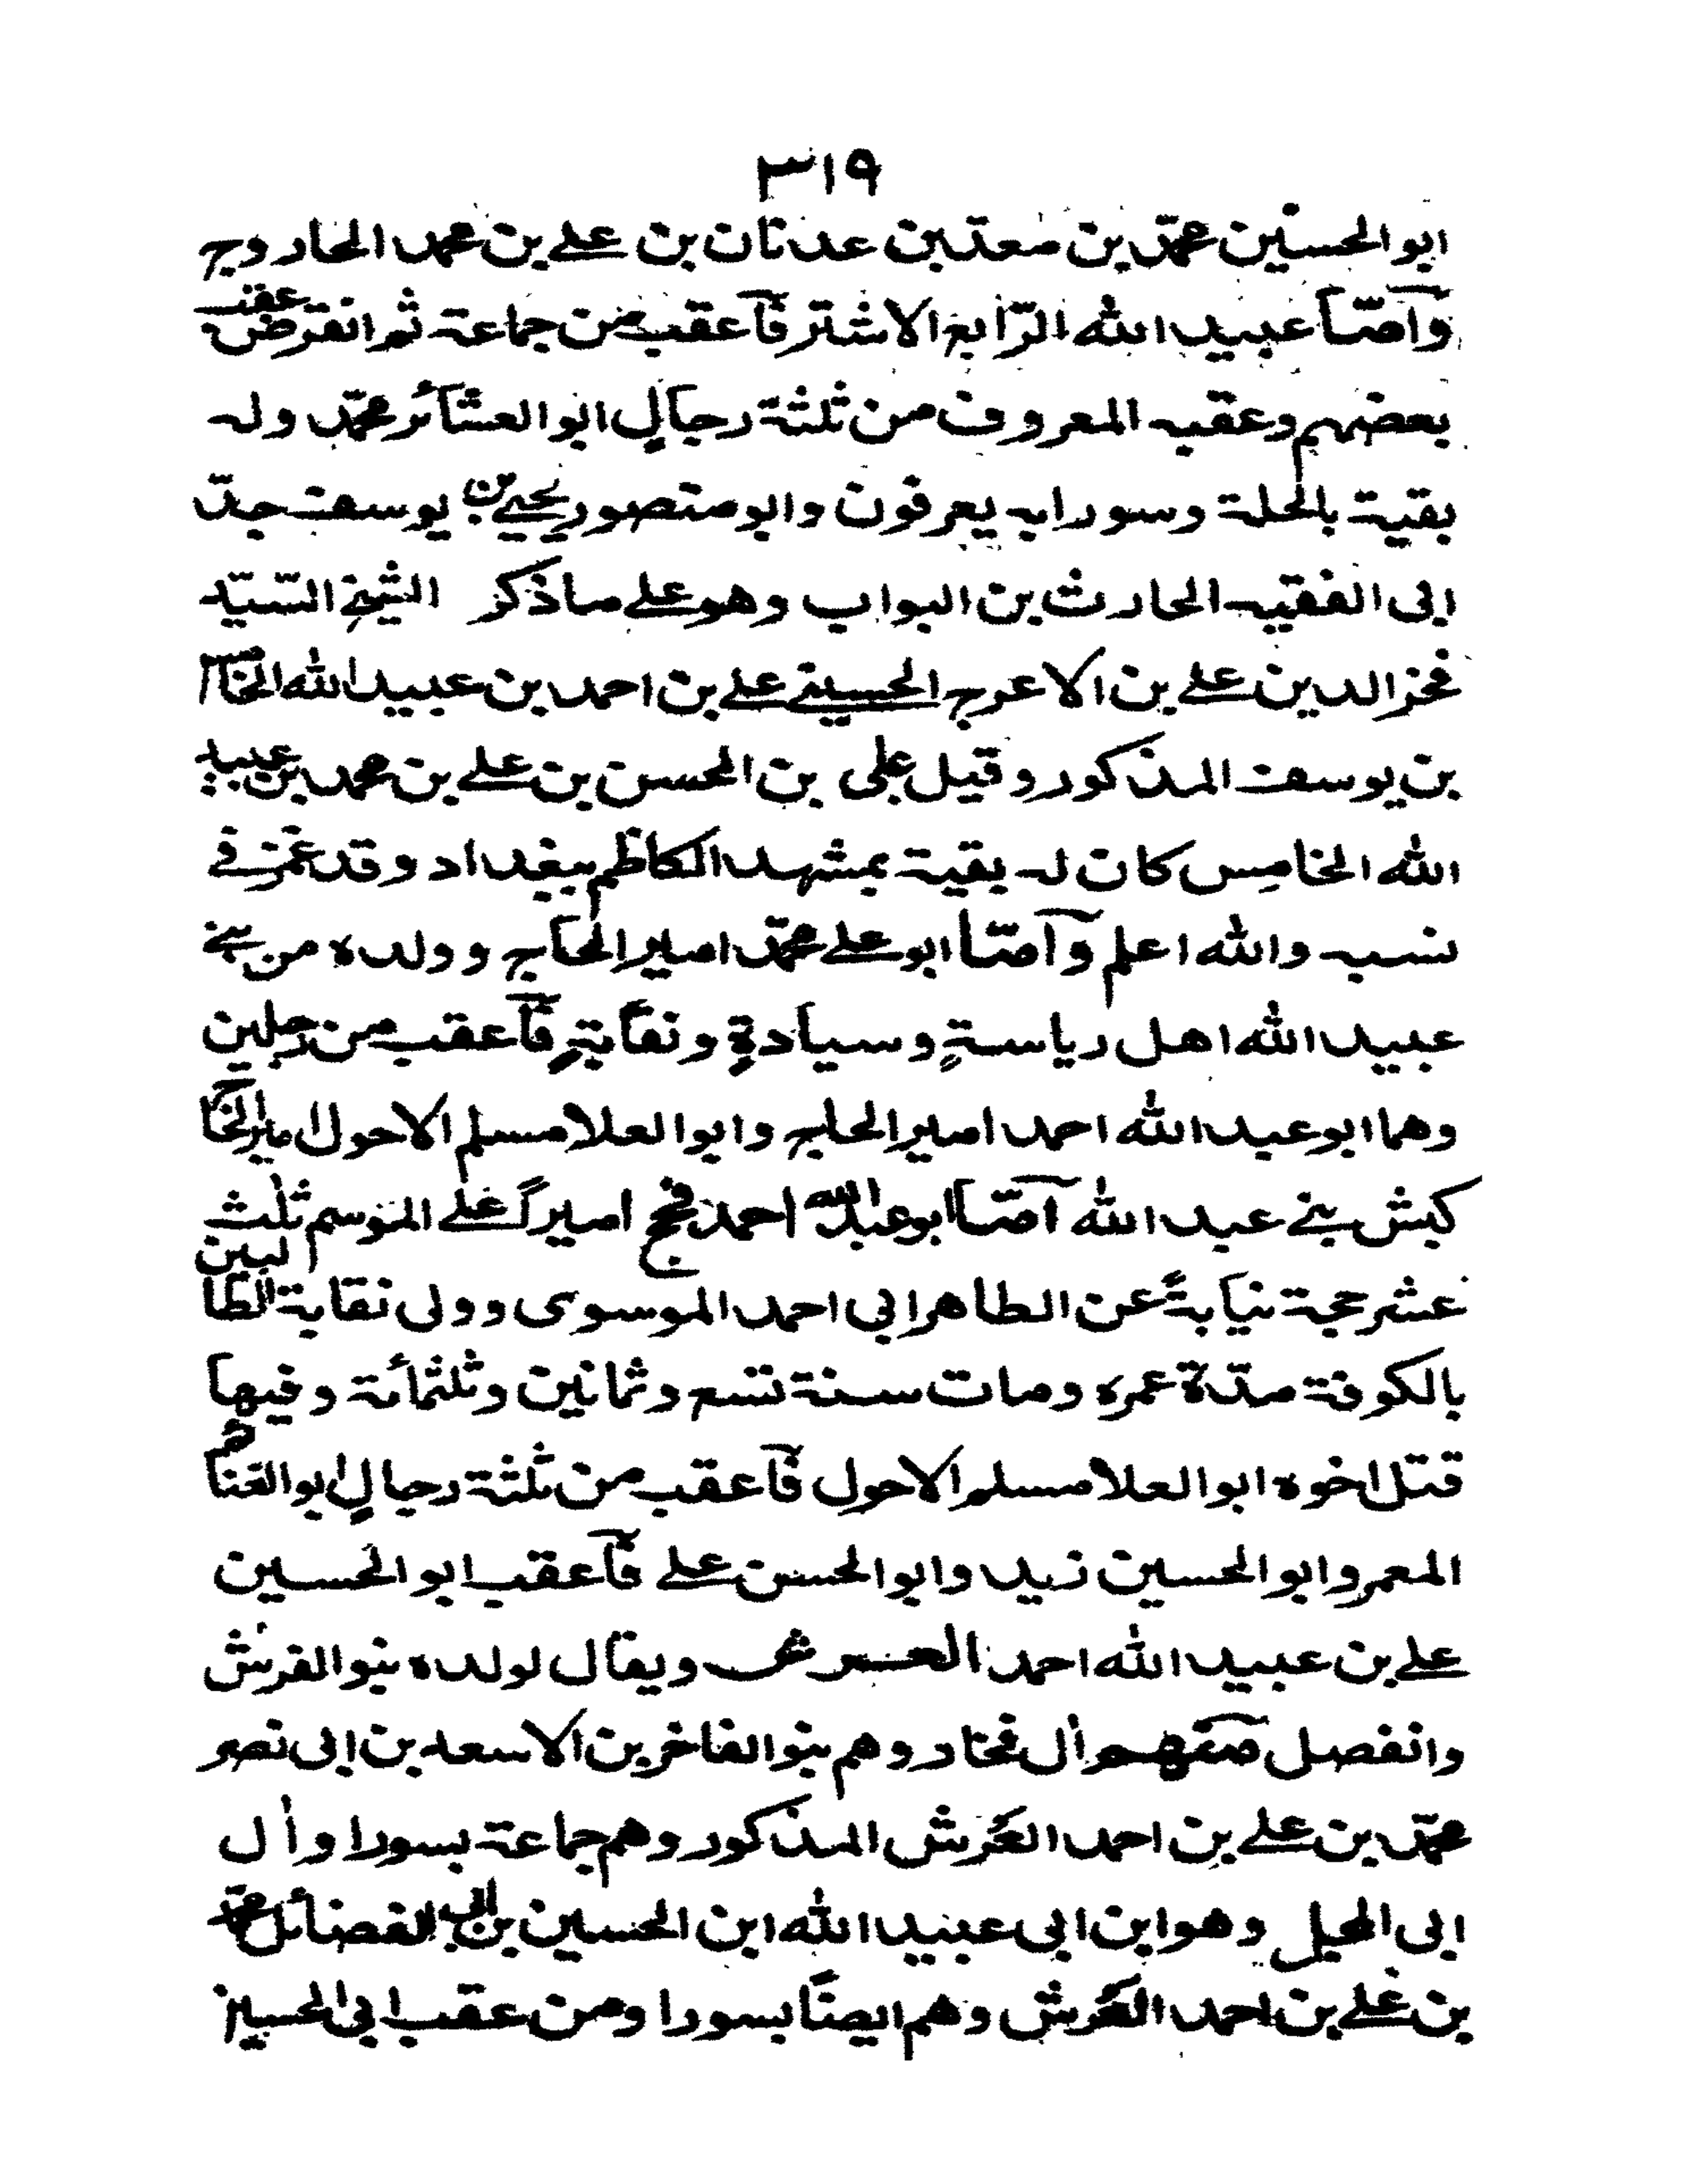 ٣١٩
ابو الحسنين محمّد بن معدّ بن عدنان بن علي بن محمد الحاروج
وآمّا عبيد الله الرّابع الاشتر فآعقب من جماعة ثم انقرض عقب
بعضهم وعقبه المعروف من ثلثة رجالٍ ابو العشائر محمّد وله
بقية بالحلة وسورا به يعرفون وابو منصور يحيي بن يوسف جدّ
ابي الفقيه الحارث بن البواب وهو علي ما ذكر الشيخ السّيّد
فخر الدين علي بن الاعرج الحسيني علي بن احمد بن عبيد الله الخامس
بن يوسف المذكور وقيل علي بن المحسن بن علي بن محمد بن عبيد
الله الخامس كان له بقية بمشهد الكاظم ببغداد وقد غمز في
نسبه والله اعلم وآمّا ابو علي محمّد امير الحاج وولده من بني
عبيد الله اهل رياسةٍ وسيادةٍ ونقابةٍ فآعقب من رجلين
وهما ابو عبد الله احمد امير الحاج وابو العلا مسلم الاحول امير الحاج
كبش بني عبد الله آمّا ابو عبد الله احمد فحج اميراً علي الموسم ثلث
عشر حجة نيابةً عن الطاهر ابي احمد الموسوي وولي نقابة الطالبين
بالكوفة مدّة عمره ومات سنة تسع وثمانين وثلثمائة وفيها
قتل اخوه ابو العلا مسلم الاحول فآعقب من ثلثة رجالٍ ابو الغنائم
المعمر وابو الحسين زيد وابو الحسن علي فآعقب ابو الحسين
علي بن عبيد الله احمد ويقال لولده بنو القرش
وانفصل منهم اٰل فخار وهم بنو الفاخر بن الاسعد بن ابي نصر
محمّد بن علي بن احمد العرش المذكور وهم جماعة بسورا واٰل
ابي وهو ابن ابي عبيد الله ابن الحسين بن ابي الفضائل محمّد
بن علي بن احمد العرش وهم ايضاً بسورا ومن عقب ابي الحسين